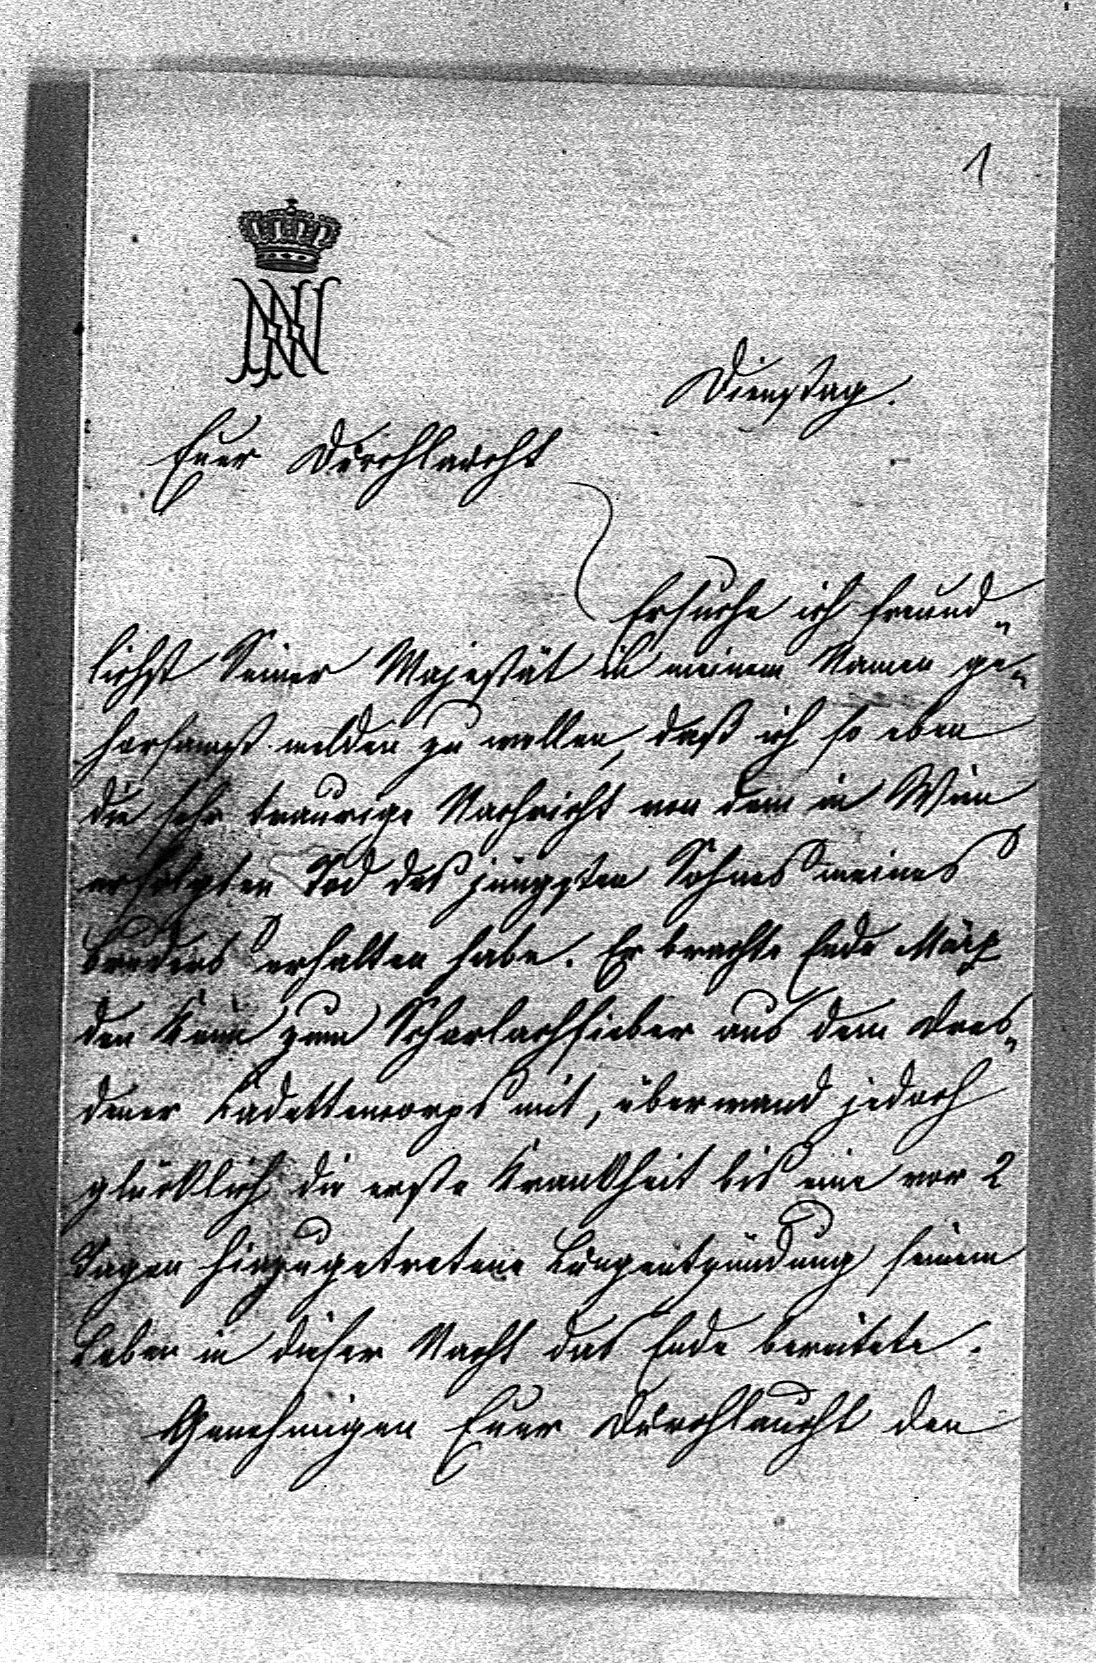 1
Dienstag.
Euer Durchlaucht
Ersuche ich freund-
lichst Seiner Majestät in meinem Namen ge-
horsamst melden zu wollen, daß ich so eben
die sehr traurige Nachricht von dem in Wien
erfolgten Tod des jüngsten Sohnes meines
Bruders erhalten habe. Er brachte Ende März
den Keim zum Scharlachfieber aus dem Dres-
dener Cadettencorps mit, überwand jedoch
glücklich die erste Krankheit bis eine vor 2
Tagen hinzugetretene Lungentzündung seinem
Leben in dieser Nacht das Ende bereitete.
Genehmigen Euer Durchlaucht den